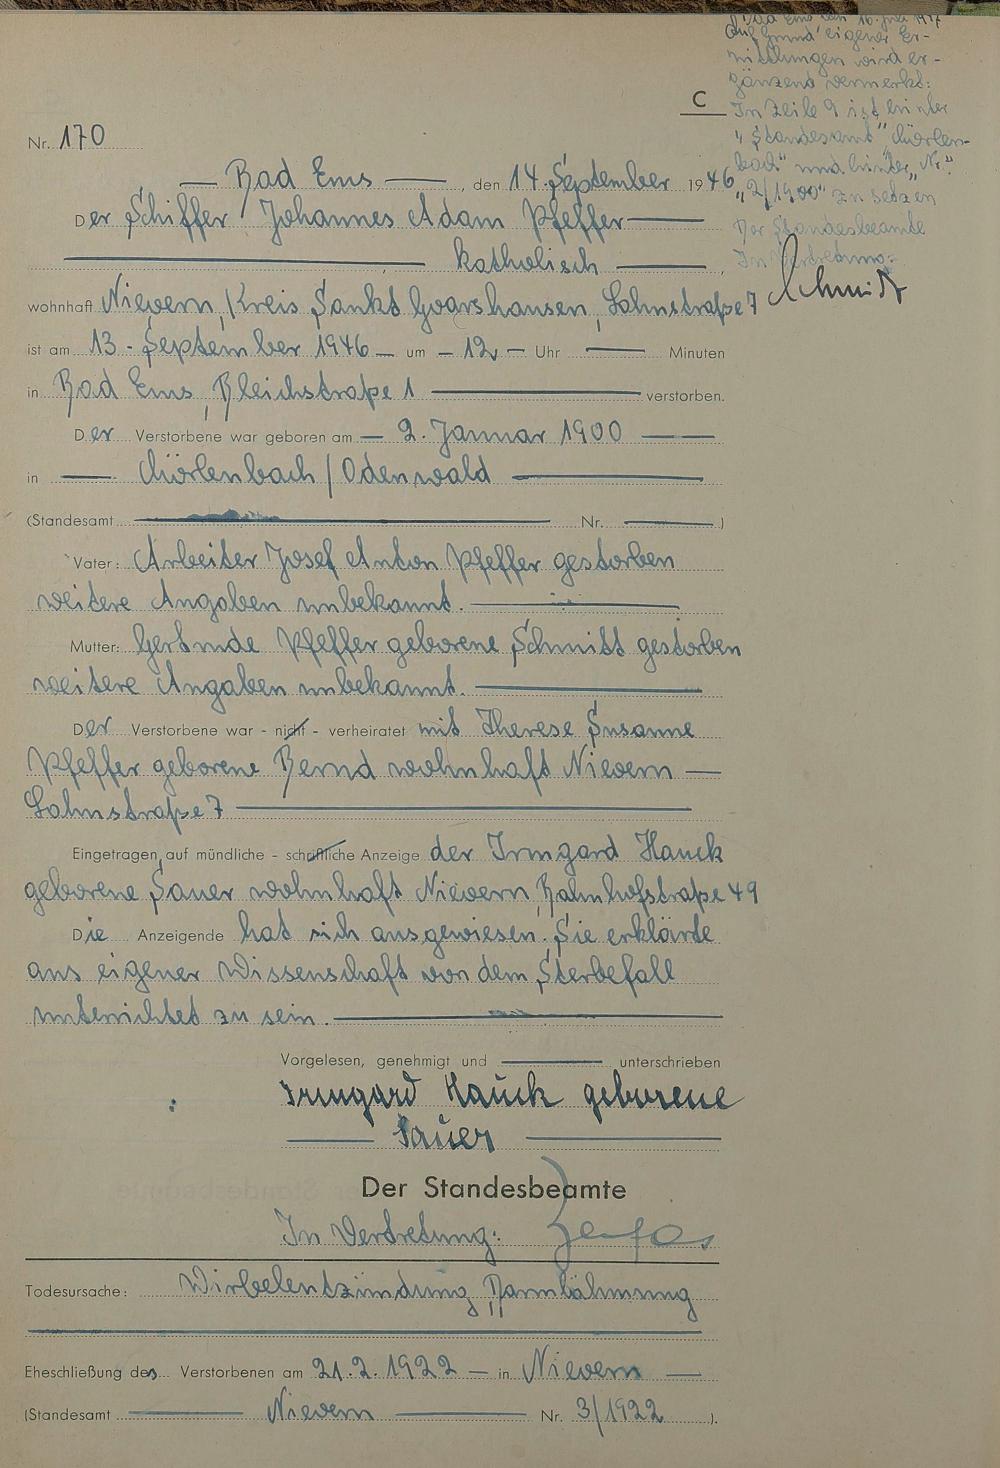 Bad Ems den 16. Juli 1947
Auf Grund eigener Er-
mittlungen wird er-
gänzend vermerkt:
In Zeile 9 ist hinter
"Standesamt" "Mörlen-
bach" und hinter "Nr."
"2/1900" zu setzen
Der Standesbeamte
In Vertretung:
Schmidt
C
Nr. 170
Bad Ems, den 14. September 1946
Der Schiffer Johannes Adam Pfeffer
katholisch,
wohnhaft Nievern, Kreis Sankt Goarshausen, Lahnstraße 7
ist am 13. September 1946 um 12 Uhr Minuten
in Bad Ems, Bleichstraße 1 verstorben.
Der Verstorbene war geboren am 2. Januar 1900
in Mörlenbach/Odenwald
(Standesamt Nr. )
Vater: Arbeiter Josef Anton Pfeffer gestorben
weitere Angaben unbekannt.
Mutter: Gertrude Pfeffer geborene Schmitt gestorben
weitere Angaben unbekannt.
Der Verstorbene war - nicht - verheiratet mit Therese Susanne
Pfeffer geborene Bernd wohnhaft Nievern
Lahnstraße 7
Eingetragen auf mündliche - schriftliche Anzeige der Irmgard Hauck
geborene Sauer wohnhaft Nievern, Bahnhofstraße 49
Die Anzeigende hat sich ausgewiesen. Sie erklärte
aus eigener Wissenschaft von dem Sterbefall
unterrichtet zu sein.
Vorgelesen, genehmigt und unterschrieben
Irmgard Hauck geborene
Sauer
Der Standesbeamte
In Vertretung:
Todesursache: Wirbelentzündung, Darmlähmung
Eheschließung des Verstorbenen am 21.2.1922 in Nievern
(Standesamt Nievern Nr. 3/1922 ).